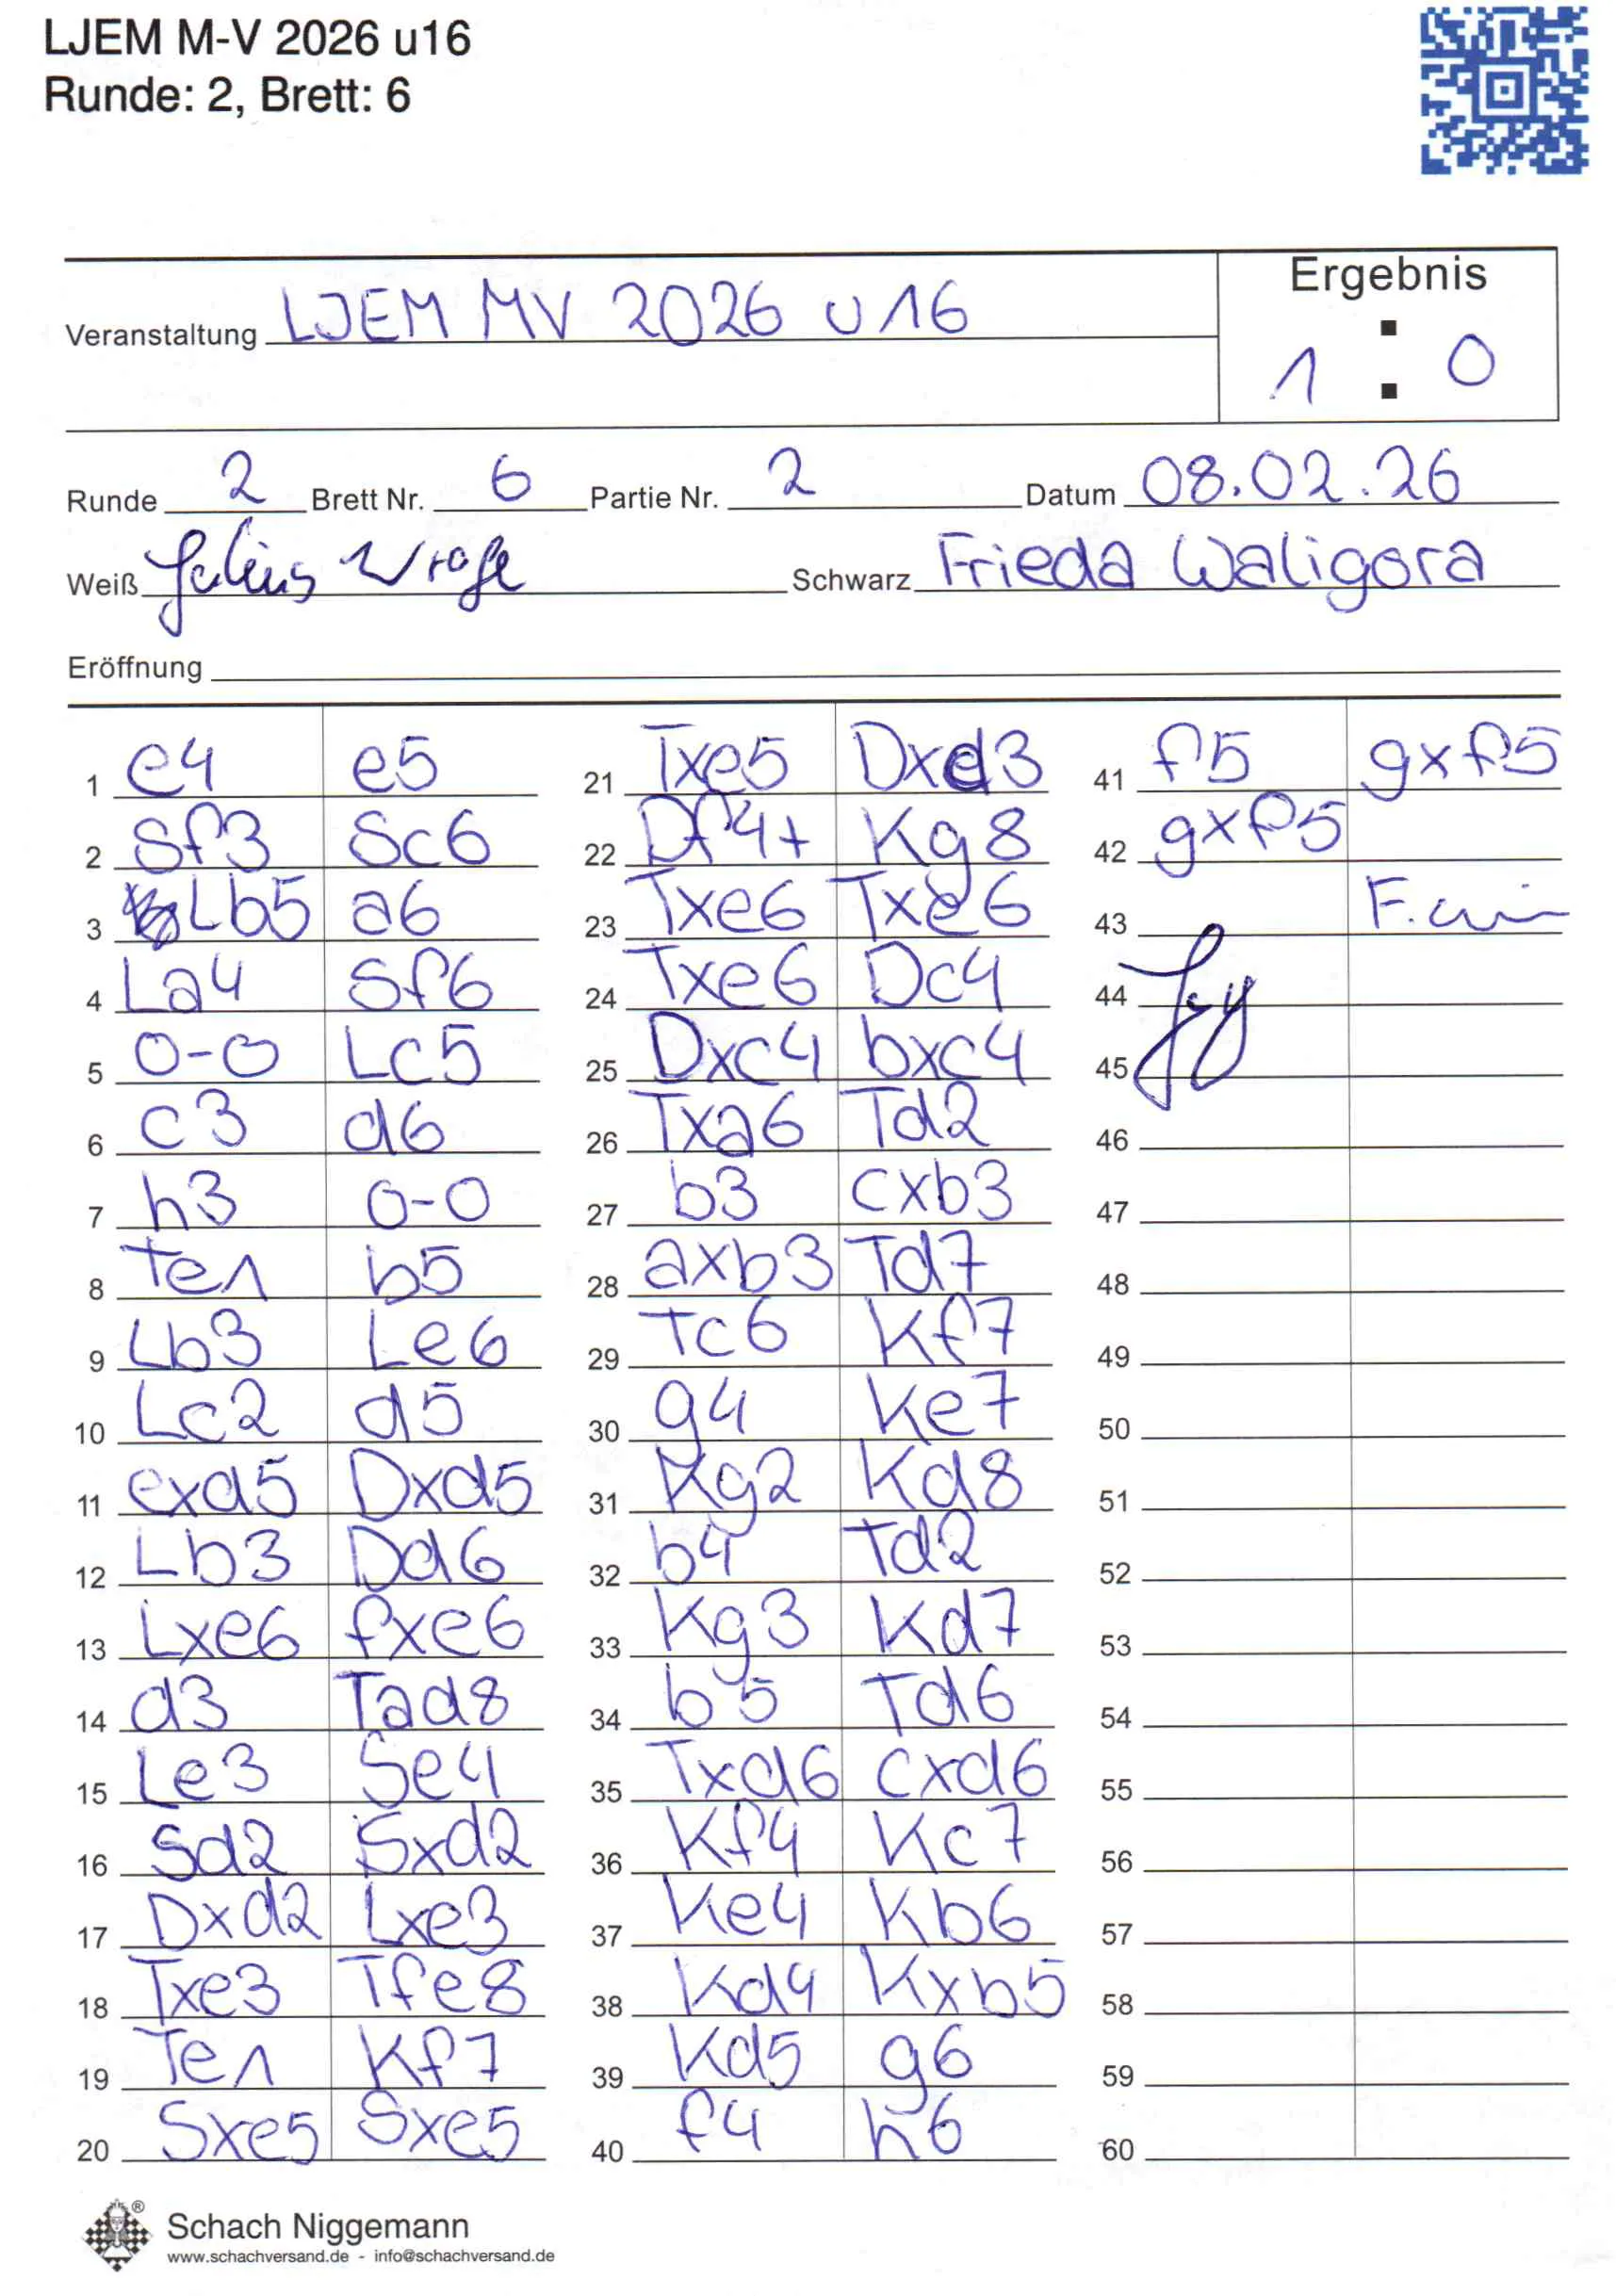 LJEM M-V 2026 u16
Runde: 2, Brett: 6
Ergebnis
Veranstaltung LJEM MV 2026 u16
1 : 0
Runde 2 Brett Nr. 6 Partie Nr. 2 Datum 08.02.26
Weiß Julius Schwarz Frieda Waligora
Eröffnung
1 e4 e5
2 Sf3 Sc6
3 Lb5 a6
4 La4 Sf6
5 0-0 Lc5
6 c3 d6
7 h3 0-0
8 Te1 b5
9 Lb3 Le6
10 Lc2 d5
11 exd5 Dxd5
12 Lb3 Dd6
13 Lxe6 fxe6
14 d3 Tad8
15 Le3 Se4
16 Sd2 Sxd2
17 Dxd2 Lxe3
18 Txe3 Tfe8
19 Te1 Kf7
20 Sxe5 Sxe5
21 Txe5 Dxd3
22 Df4+ Kg8
23 Txe6 Txe6
24 Txe6 Dc4
25 Dxc4 bxc4
26 Txa6 Td2
27 b3 cxb3
28 axb3 Td7
29 Tc6 Kf7
30 g4 Ke7
31 Kg2 Kd8
32 b4 Td2
33 Kg3 Kd7
34 b5 Td6
35 Txd6 cxd6
36 Kf4 Kc7
37 Ke4 Kb6
38 Kd4 Kxb5
39 Kd5 g6
40 f4 h6
41 f5 gxf5
42 gxf5
43
44
45
46
47
48
49
50
51
52
53
54
55
56
57
58
59
60
Schach Niggemann
www.schachversand.de - info@schachversand.de